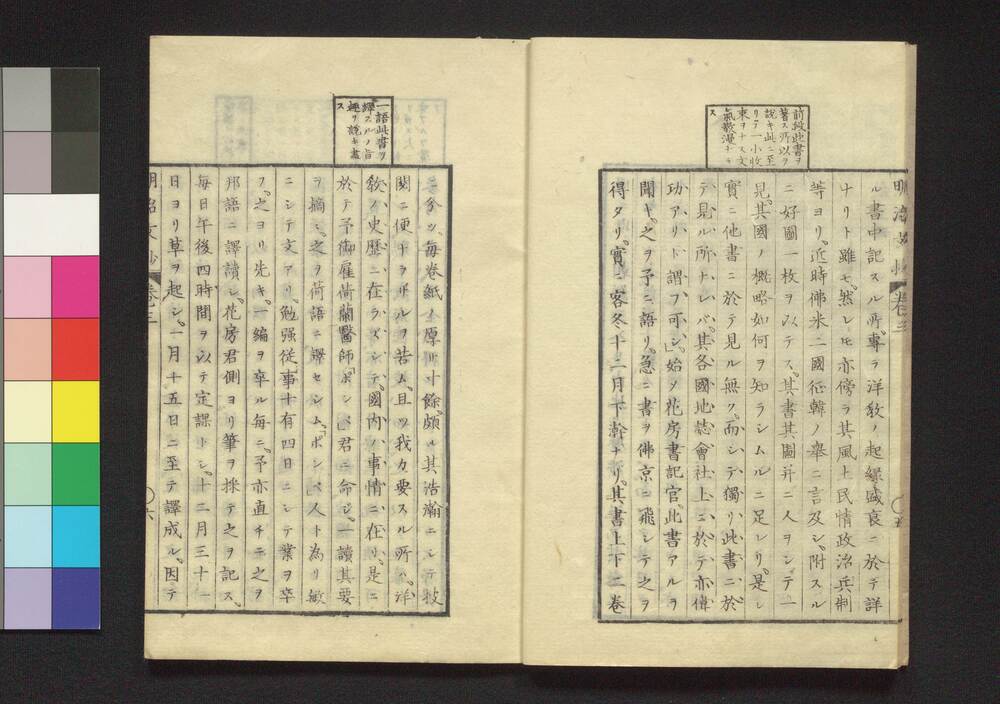 前段此書ヲ
著ス所以ヲ
説キ此ニ至
リテ一小收
束ヲナス文
氣散漫ナラ
ス
明治文抄 卷三
ル書中記スル所、專ラ洋教ノ起緣盛衰ニ於テ詳
ナリト雖モ、然レ𪜈亦傍ラ其風土民情政治兵制
等ヨリ。近時佛米二國征韓ノ舉ニ言及シ。附スル
ニ好圖一枚ヲ以テス。其書其圖并ニ人ヲシテ一
見。其國ノ概略如何ヲ知ラシムルニ足レリ。是レ
實ニ他書ニ於テ見ル無ク。而シテ獨リ此書ニ於
テ見ル所ナレバ、其各國地誌會社上ニ於テ亦偉
功アリト謂フ可シ」始メ花房書記官。此書アルヲ
聞キ。之ヲ予ニ語リ。急ニ書ヲ佛京ニ飛シテ之ヲ
得タリ。實ニ客冬十二月下幹ナリ。其書上下二卷
一語此書ヲ
繹スルノ旨
趣ヲ說キ盡
ス
ニ分ツ。每卷紙ノ厚サ寸餘。頗ル其浩瀚ニシテ披
閱ニ便ナラザルヲ苦ム。且ツ我カ要スル所ハ。洋
教ノ史歷ニ在ラズシテ。國內ノ事情ニ在リ。是ニ
於テ予御雇荷蘭醫師「ポンペ」君ニ命シ。一讀其要
ヲ摘ミ。之ヲ荷語ニ譯セシム。「ポンペ」人ト為リ敏
ニシテ文アリ。勉强從事十有四日ニシテ業ヲ卒
フ。之ヨリ先キ。一編ヲ卒ル每ニ。予亦直チニ之ヲ
邦語ニ譯讀シ。花房君側ヨリ筆ヲ採テ之ヲ記ス。
每日午後四時間ヲ以テ定課トシ。十二月三十一
日ヨリ草ヲ起シ。一月十五日ニ至テ譯成ル。因テ
明治文抄 卷三 〇六